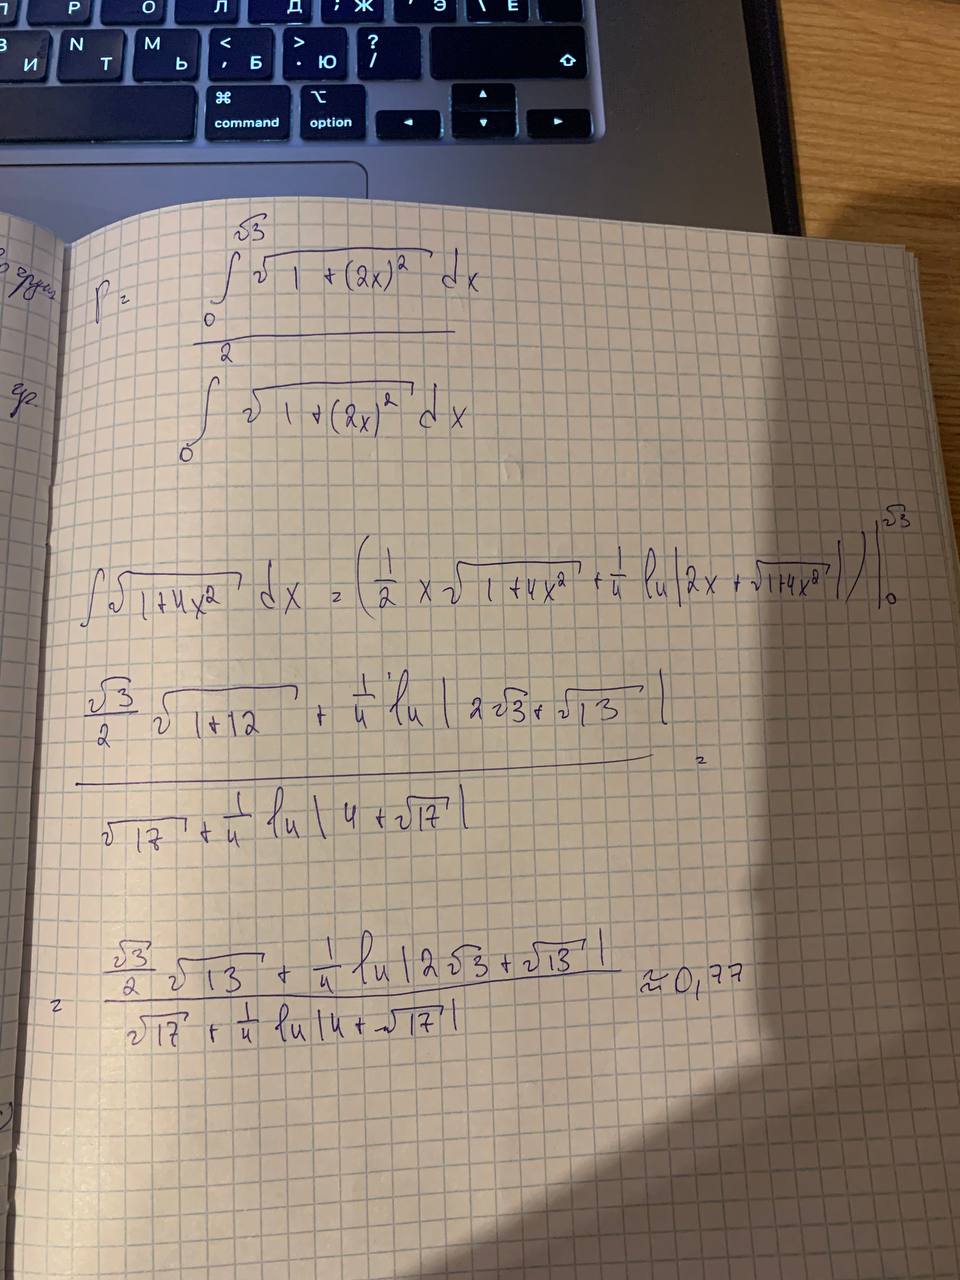 P О Л Д ; Ж , Э \ Ё
И N Т М Ь < , Б > . Ю ? /
⌘ ⌥ ▲
command option ◄ ▼ ►
P = \frac{\int_0^{\sqrt{3}} \sqrt{1+(2x)^2} dx}{\int_0^2 \sqrt{1+(2x)^2} dx}
\int \sqrt{1+4x^2} dx = (\frac{1}{2} x \sqrt{1+4x^2} + \frac{1}{4} ln|2x + \sqrt{1+4x^2}|)|_0^{\sqrt{3}}
\frac{\frac{\sqrt{3}}{2} \sqrt{1+12} + \frac{1}{4} ln|2\sqrt{3} + \sqrt{13}|}{\sqrt{17} + \frac{1}{4} ln|4 + \sqrt{17}|} =
= \frac{\frac{\sqrt{3}}{2} \sqrt{13} + \frac{1}{4} ln|2\sqrt{3} + \sqrt{13}|}{\sqrt{17} + \frac{1}{4} ln|4 + \sqrt{17}|} ≈ 0,77